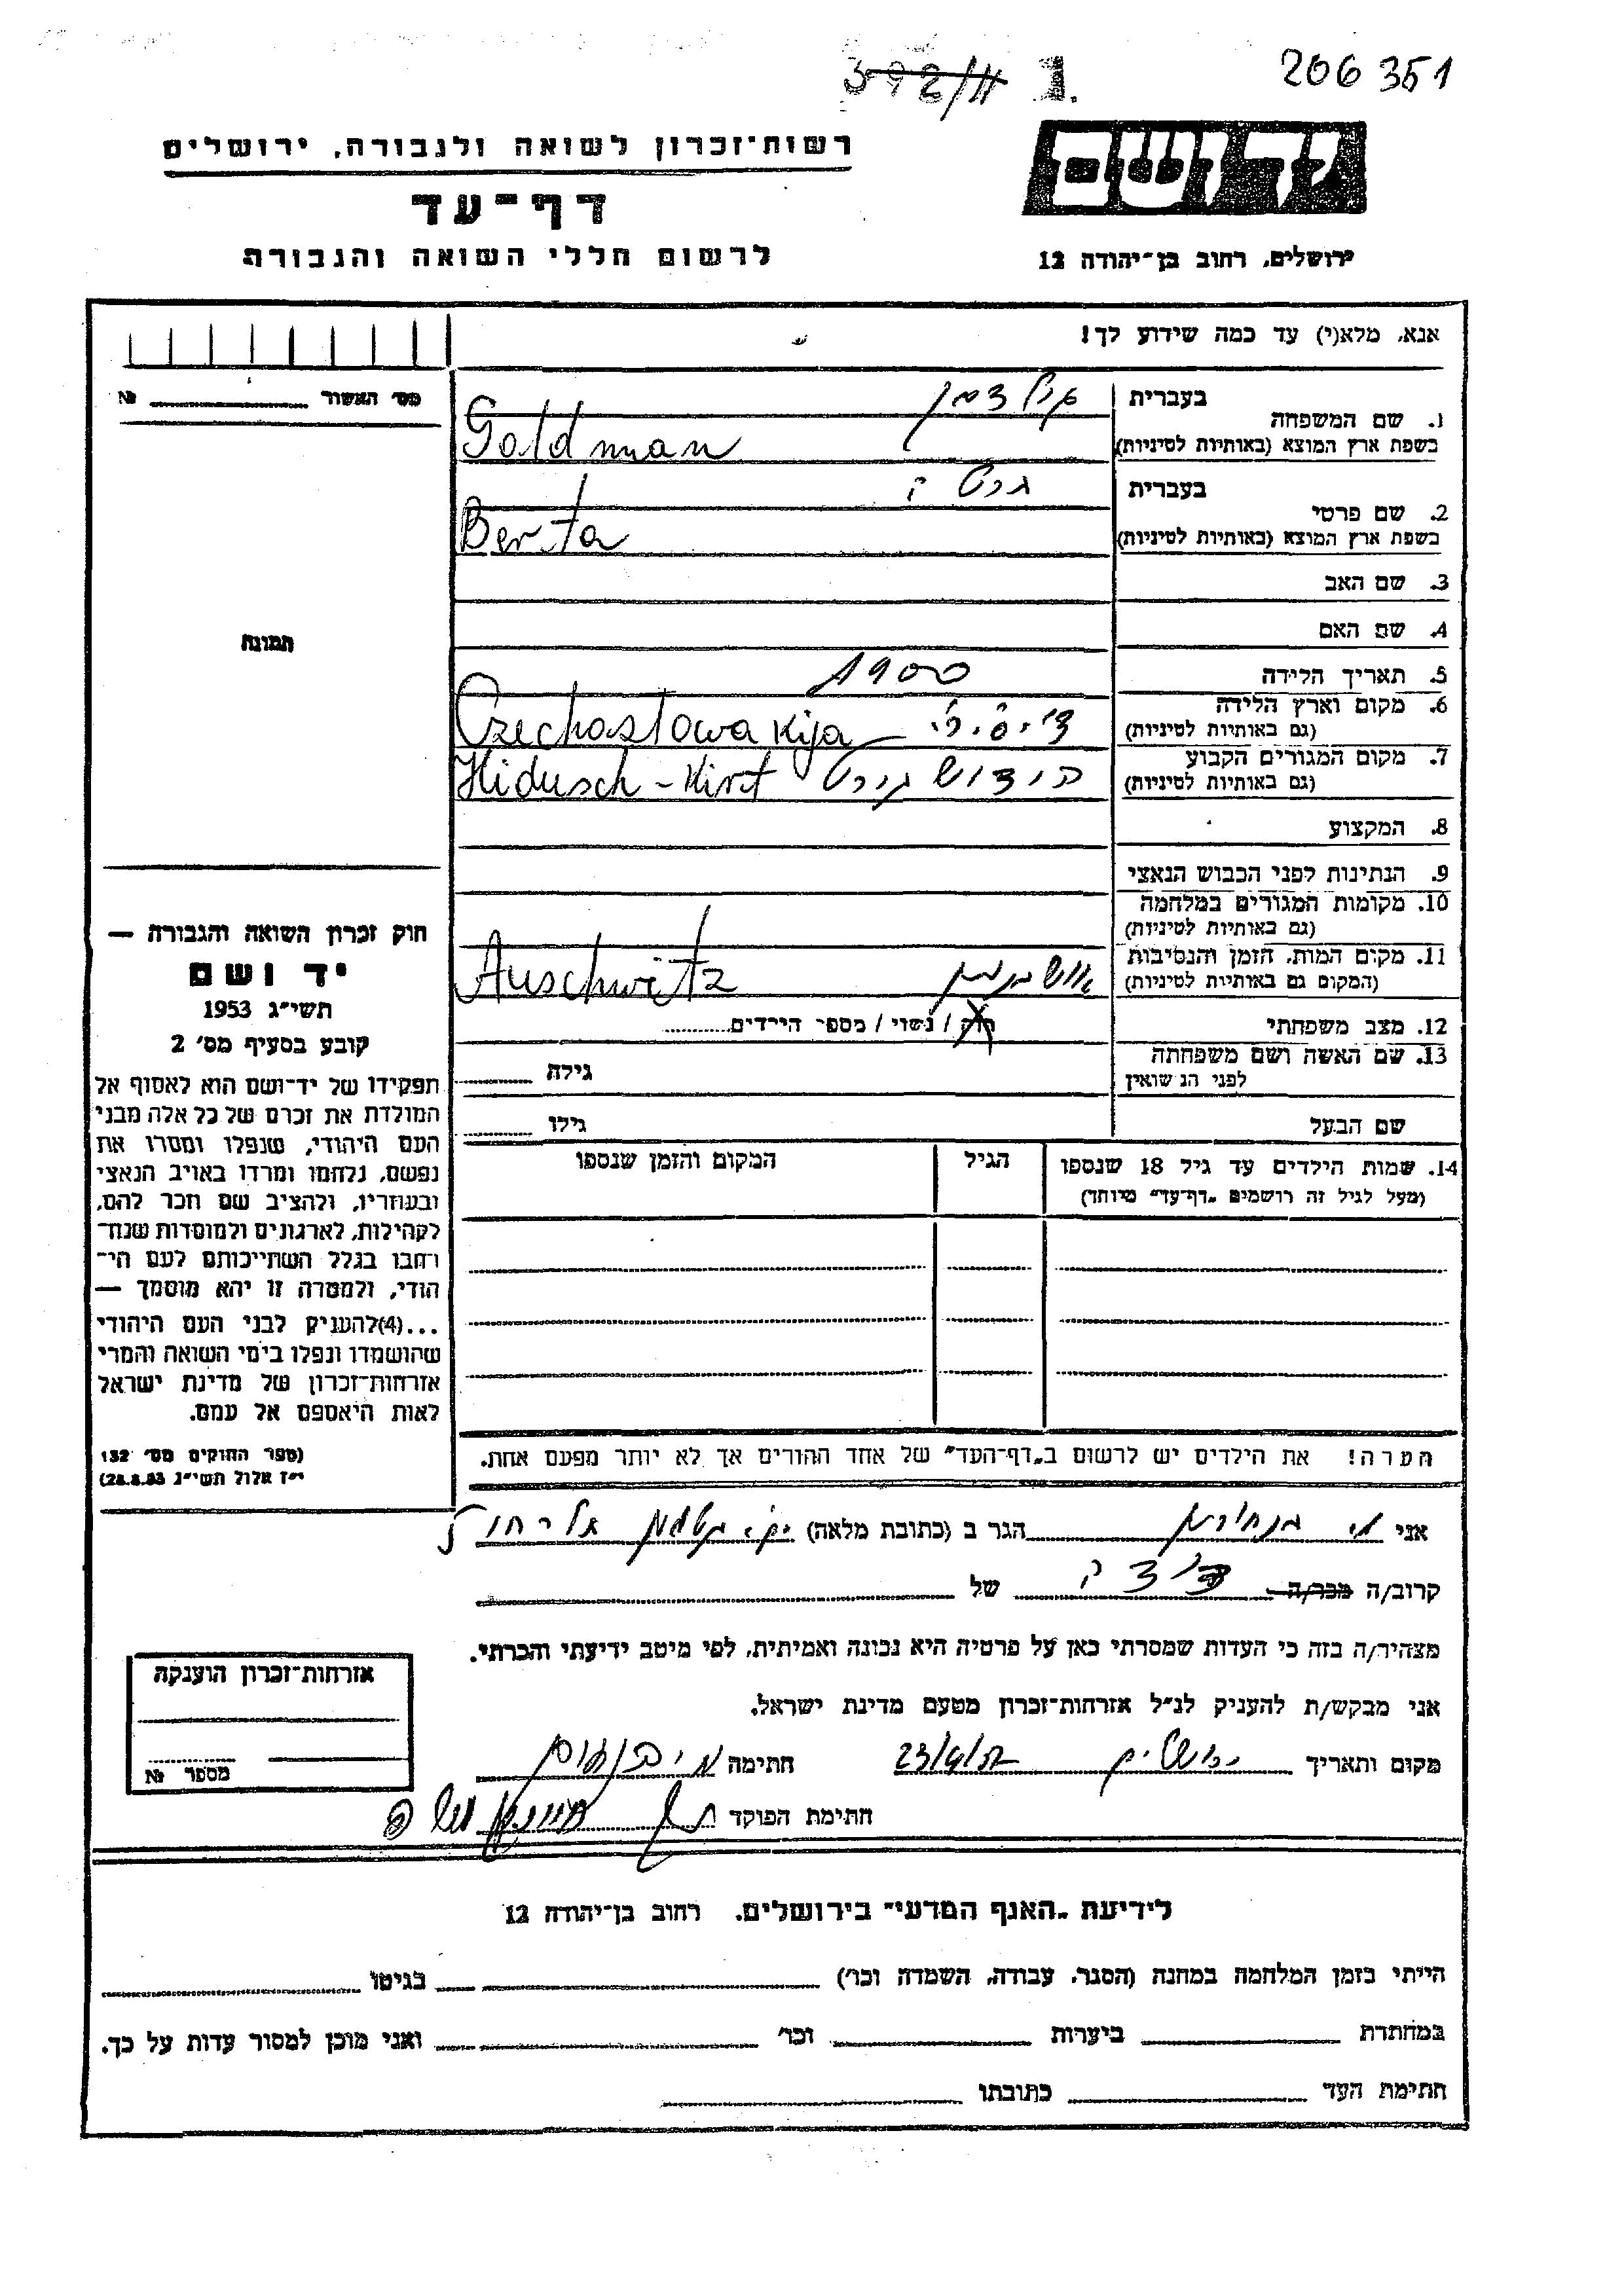 206351
392/II 1.
יד ושם
רשות־זכרון לשואה ולגבורה, ירושלים
דף־עד
לרשום חללי השואה והגבורה
ירושלים, רחוב בן־יהודה 12
אנא, מלא(י) עד כמה שידוע לך!
מס' האשור №
1. שם המשפחה
בעברית גולדמן
בשפת ארץ המוצא (באותיות לטיניות) Goldman
2. שם פרטי
בעברית ברטה
בשפת ארץ המוצא (באותיות לטיניות) Berta
3. שם האב
4. שם האם
5. תאריך הלידה 1900
6. מקום וארץ הלידה
(גם באותיות לטיניות) Czechoslowakija
7. מקום המגורים הקבוע
(גם באותיות לטיניות) Hidusch-Kirt
8. המקצוע
9. הנתינות לפני הכבוש הנאצי
10. מקומות המגורים במלחמה
(גם באותיות לטיניות)
11. מקום המות, הזמן והנסיבות
(המקום גם באותיות לטיניות) Auschwitz
12. מצב משפחתי רוק / נשוי / מספר הילדים
13. שם האשה ושם משפחתה
לפני הנשואין גילה
שם הבעל גילו
14. שמות הילדים עד גיל 18 שנספו הגיל המקום והזמן שנספו
(מעל לגיל זה רושמים „דף־עד" מיוחד)
הערה! את הילדים יש לרשום ב„דף־העד" של אחד ההורים אך לא יותר מפעם אחת.
תמונה
חוק זכרון השואה והגבורה —
יד ושם
תשי"ג 1953
קובע בסעיף מס' 2
תפקידו של יד־ושם הוא לאסוף אל
המולדת את זכרם של כל אלה מבני
העם היהודי, שנפלו ומסרו את
נפשם, נלחמו ומרדו באויב הנאצי
ובעוזריו, ולהציב שם וזכר להם,
לקהילות, לארגונים ולמוסדות שנח־
רבו בגלל השתייכותם לעם הי־
הודי, ולמטרה זו יהא מוסמך —
...(4)להעניק לבני העם היהודי
שהושמדו ונפלו בימי השואה והמרי
אזרחות־זכרון של מדינת ישראל
לאות היאספם אל עמם.
(ספר החוקים מס' 132
י"ז אלול תשי"ג 28.8.53)
אני הגר ב (כתובת מלאה)
קרוב/ה מכר/ה של
מצהיר/ה בזה כי העדות שמסרתי כאן על פרטיה היא נכונה ואמיתית, לפי מיטב ידיעתי והכרתי.
אני מבקש/ת להעניק לנ"ל אזרחות־זכרון מטעם מדינת ישראל.
מקום ותאריך ירושלים חתימה
חתימת הפוקד
אזרחות־זכרון הוענקה
מספר №
לידיעת „האגף המדעי" בירושלים, רחוב בן־יהודה 12
הייתי בזמן המלחמה במחנה (הסגר, עבודה, השמדה וכר') בגיטו
במחתרת ביערות וכר' ואני מוכן למסור עדות על כך.
חתימת העד כתובתו